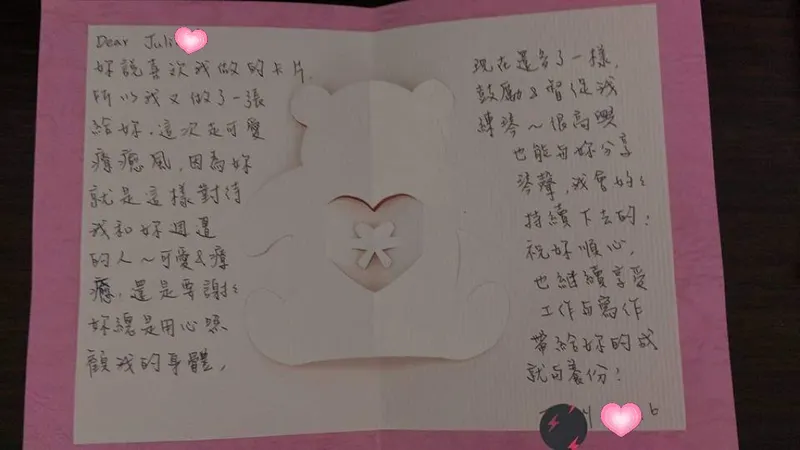 Dear Juli
妳說喜歡我做的卡片,
所以我又做了一張
給妳,這次走可愛
療癒風,因為妳
就是這樣對待
我和妳週遭
的人~可愛&療
癒,還是要謝謝
妳總是用心照
顧我的身體,
現在還多了一樣,
鼓勵&督促我
練琴~很高興
也能與妳分享
琴聲,我會好好
持續下去的!
祝妳順心,
也繼續享受
工作與寫作
帶給妳的成
就與養份!